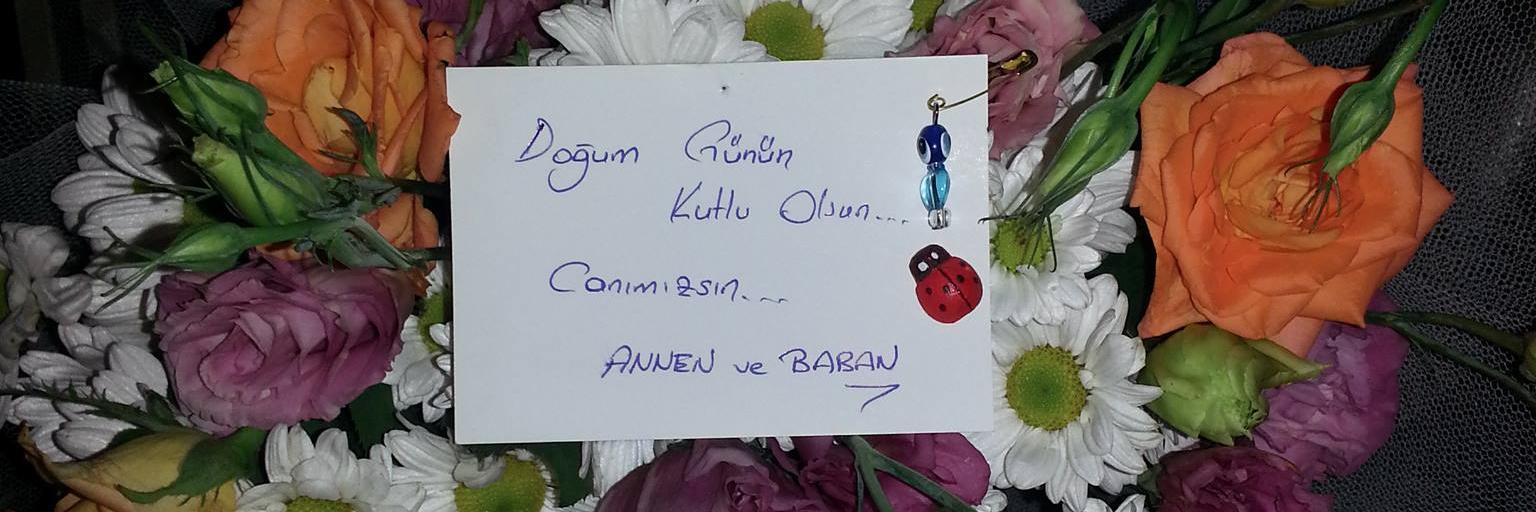 Doğum Günün
Kutlu Olsun...
Canımızsın...
ANNEN ve BABAN